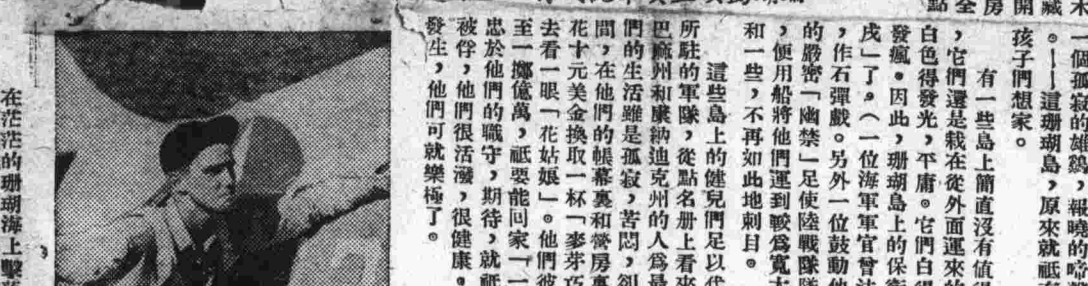 未
藏
開
房
全
點
一個孤寂的雄鷄,報曉的啼
。——這珊瑚島,原來就祇
孩子們想家。
有一些島上簡直沒有值得
,它們還是栽在從外面運來的
白色得發光,平庸。它們白得
發瘋。因此,珊瑚島上的保衛
戍」了。(一位海軍軍官曾
,作石彈戲。另外一位鼓動他
的嚴密「幽禁」足使陸戰隊
,便用船將他們運到較爲寬大
和一些,不再如此地刺目。
這些島上的健兒們足以代
所駐的軍隊,從點名册上看來
巴麻州和康納迪克州的人爲最
們的生活雖是孤寂,苦悶,卻
間,在他們的帳幕裏和營房裏
花十元美金換取一杯「麥芽巧
去看一眼「花姑娘」。他們彼
至一擲億萬,祇要能回家「一
忠於他們的職守,期待,就祇
被俘,他們很活潑,很健康。
發生,他們可就樂極了。
在茫茫的珊瑚海上擊